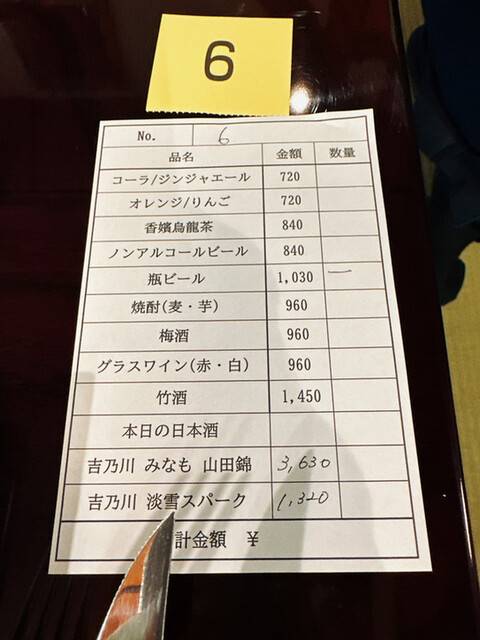 6
No. 6
品名 金額 数量
コーラ/ジンジャエール 720
オレンジ/りんご 720
香嬪烏龍茶 840
ノンアルコールビール 840
瓶ビール 1,030 一
焼酎(麦・芋) 960
梅酒 960
グラスワイン(赤・白) 960
竹酒 1,450
本日の日本酒
吉乃川 みなも 山田錦 3,630
吉乃川 淡雪スパーク 1,320
計金額 ¥